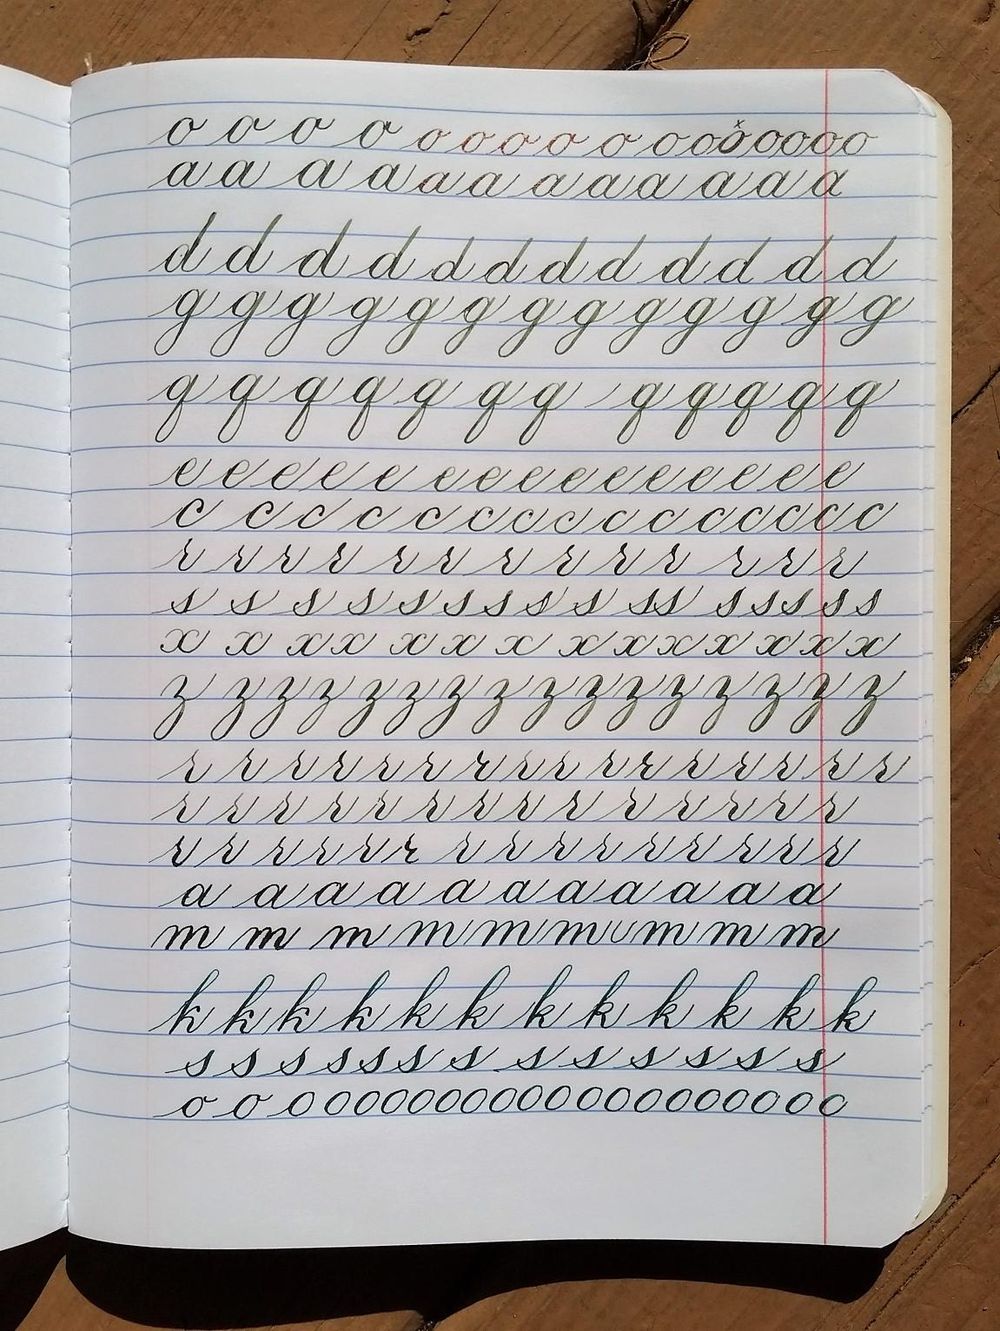 o o o o o o o o o o o o o o o o
a a a a a a a a a a a a
d d d d d d d d d d d d
g g g g g g g g g g g g g
q q q q q q q q q q q q
e e e e e e e e e e e e e e e
c c c c c c c c c c c c c c c
r r r r r r r r r r r r r
s s s s s s s s s s s s s s s s
x x x x x x x x x x x x x x
z z z z z z z z z z z z z z z z
r r r r r r r r r r r r r r r r
r r r r r r r r r r r r r r
r r r r r r r r r r r r r r r
a a a a a a a a a a a
m m m m m m u m m m
k k k k k k k k k k k k
s s s s s s s s s s s s s
o o o o o o o o o o o o o o o o o o o o o